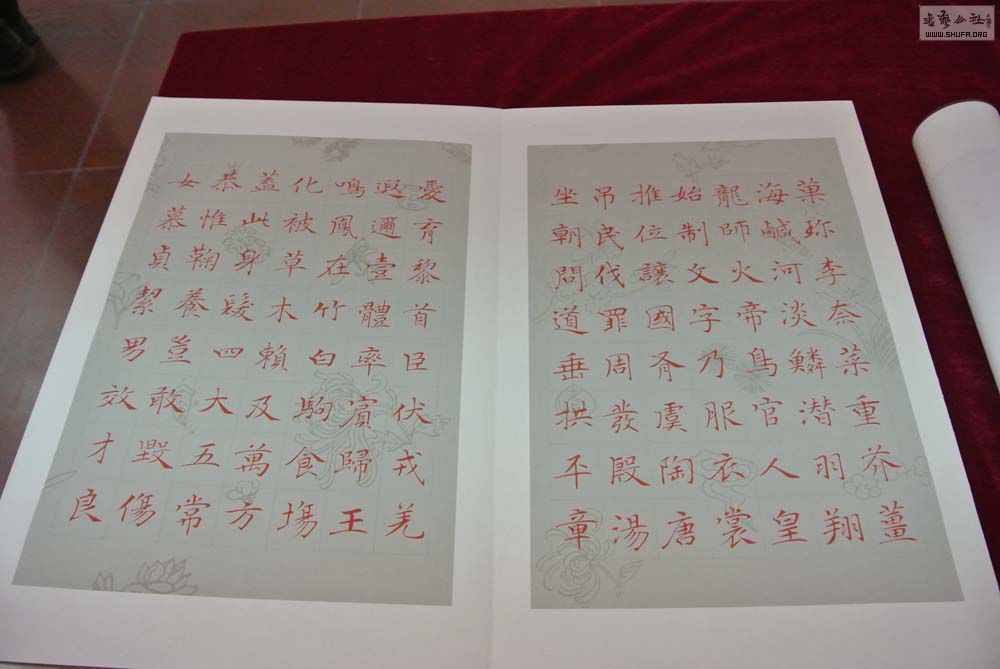 菓珎李奈菜重芥薑
海鹹河淡鱗潜羽翔
龍師火帝鳥官人皇
始制文字乃服衣裳
推位讓國有虞陶唐
吊民伐罪周發殷湯
坐朝問道垂拱平章
愛育黎首臣伏戎羌
遐邇壹體率濱歸王
鳴鳳在竹白駒食場
化被草木賴及萬方
蓋此身髮四大五常
恭惟鞠養豈敢毀傷
女慕貞絜男效才良
WWW.SHUFA.ORG